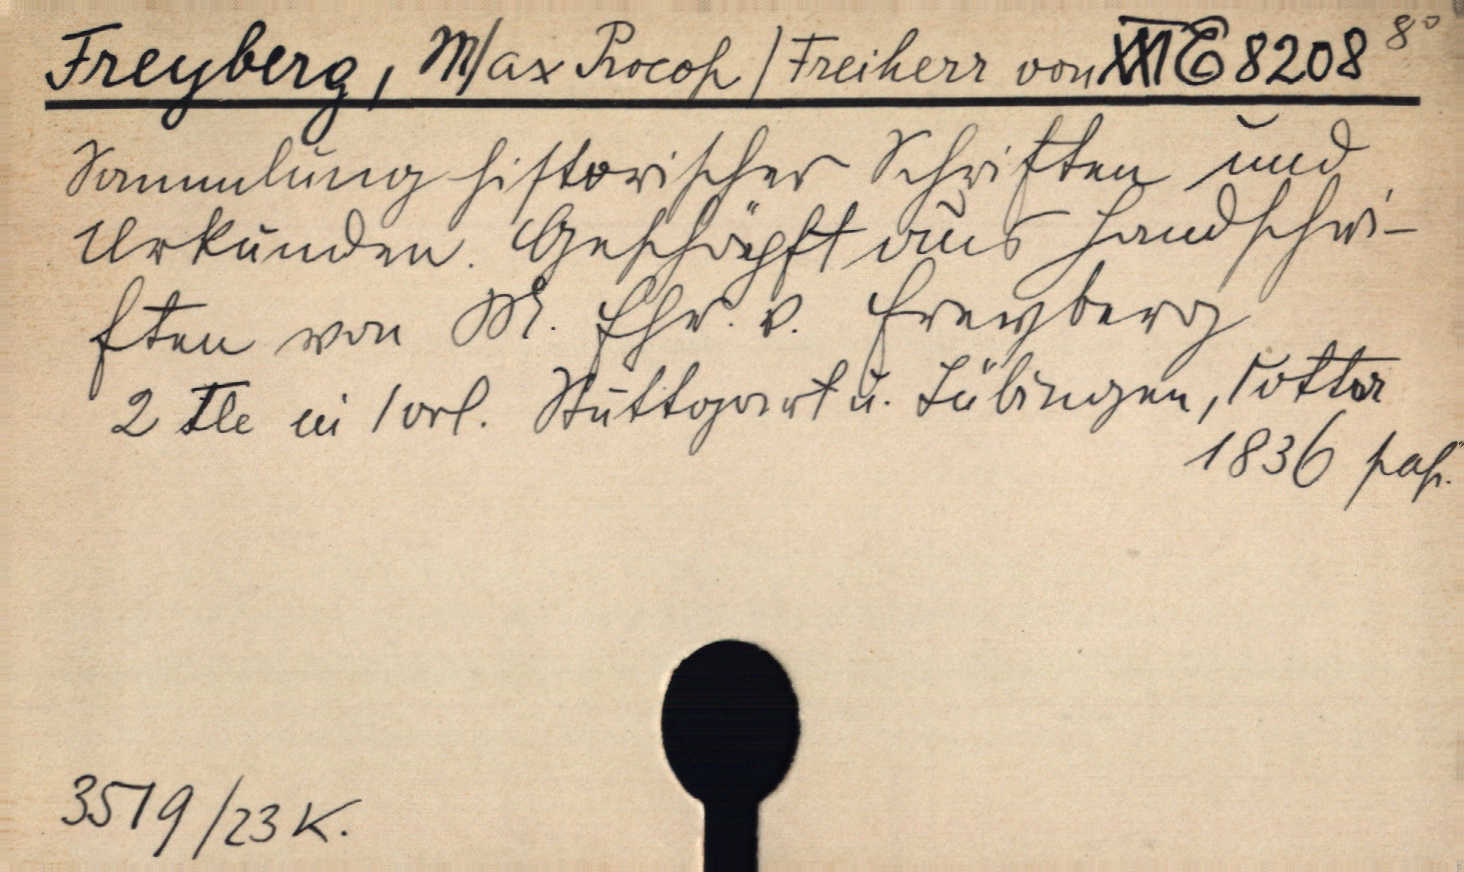 Freyberg, M/ax Procop/ Freiherr von III E 8208 8°
Sammlung historischer Schriften und
Urkunden. Geschöpft aus Handschri-
ften von M. Fhr. v. Freyberg
2 Tle in 1 vol. Stuttgart u. Tübingen, Cotta
1836 pap.
3519/23 K.